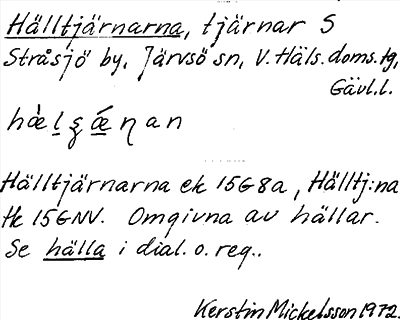 Hälltjärnarna, tjärnar S
Stråsjö by, Järvsö sn, V. Häls. doms. tg,
Gävl.l.
Hälltjärnarna ek 15G8a, Hälltj:na
tk 15GNV. Omgivna av hällar.
Se hälla i dial. o. reg..
Kerstin Mickelsson 1972.